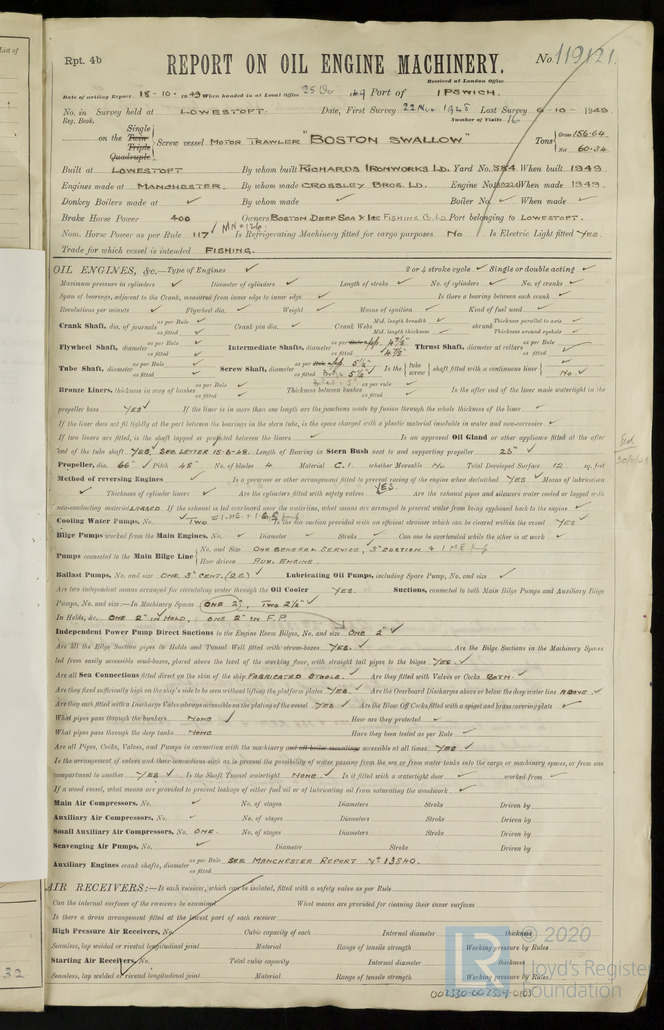 Rpt. 4b
REPORT ON OIL ENGINE MACHINERY.
No. 119121
Received at London Office
Date of writing Report 18-10-1949 When handed in at Local Office 25 Oct 49 Port of IPSWICH.
No. in Survey held at LOWESTOFT. Date, First Survey 22 Nov 1948 Last Survey 6-10-1949
Reg. Book. Number of Visits 16
on the Single Twin Triple Quadruple Screw vessel MOTOR TRAWLER "BOSTON SWALLOW" Tons Gross 156.64 Net 60.34
Built at LOWESTOFT By whom built RICHARDS IRONWORKS LD. Yard No. 384 When built 1949
Engines made at MANCHESTER. By whom made CROSSLEY BROS. LD. Engine No. When made 1949.
Donkey Boilers made at ✓ By whom made ✓ Boiler No. ✓ When made ✓
Brake Horse Power 400 Owners BOSTON DEEP SEA & ICE FISHING CO. LD Port belonging to LOWESTOFT.
Nom. Horse Power as per Rule 117 MN = 126. Is Refrigerating Machinery fitted for cargo purposes NO Is Electric Light fitted YES.
Trade for which vessel is intended FISHING.
OIL ENGINES, &c.—Type of Engines ✓ 2 or 4 stroke cycle ✓ Single or double acting ✓
Maximum pressure in cylinders ✓ Diameter of cylinders ✓ Length of stroke ✓ No. of cylinders ✓ No. of cranks ✓
Span of bearings, adjacent to the Crank, measured from inner edge to inner edge ✓ Is there a bearing between each crank ✓
Revolutions per minute ✓ Flywheel dia. ✓ Weight ✓ Means of ignition ✓ Kind of fuel used ✓
Crank Shaft, dia. of journals as per Rule as fitted ✓ Crank pin dia. ✓ Crank Webs Mid. length breadth ✓ Mid. length thickness shrunk Thickness parallel to axis ✓ Thickness around eyehole ✓
Flywheel Shaft, diameter as per Rule ✓ as fitted Intermediate Shafts, diameter as per Rule app. 4 7/8" as fitted 4 7/8" Thrust Shaft, diameter at collars as per Rule as fitted ✓
Tube Shaft, diameter as per Rule ✓ as fitted Screw Shaft, diameter as per Rule app. 5 1/2" as fitted 5 1/2" Is the tube screw shaft fitted with a continuous liner NO.
Bronze Liners, thickness in way of bushes as per Rule as fitted Thickness between bushes as per rule ✓ as fitted Is the after end of the liner made watertight in the
propeller boss YES ✓ If the liner is in more than one length are the junctions made by fusion through the whole thickness of the liner ✓
If the liner does not fit tightly at the part between the bearings in the stern tube, is the space charged with a plastic material insoluble in water and non-corrosive ✓
If two liners are fitted, is the shaft lapped or protected between the liners ✓ Is an approved Oil Gland or other appliance fitted at the after
end of the tube shaft YES. SEE LETTER 15-6-48. Length of Bearing in Stern Bush next to and supporting propeller 23" ✓
Propeller, dia. 66" Pitch 48" No. of blades 4 Material C.I. whether Moveable NO Total Developed Surface 12 sq. feet
Method of reversing Engines ✓ Is a governor or other arrangement fitted to prevent racing of the engine when declutched YES ✓ Means of lubrication
✓ Thickness of cylinder liners ✓ Are the cylinders fitted with safety valves YES. Are the exhaust pipes and silencers water cooled or lagged with
non-conducting material LAGGED If the exhaust is led overboard near the waterline, what means are arranged to prevent water from being syphoned back to the engine ✓
Cooling Water Pumps, No. TWO Is the sea suction provided with an efficient strainer which can be cleared within the vessel YES ✓
Bilge Pumps worked from the Main Engines, No. ✓ Diameter ✓ Stroke ✓ Can one be overhauled while the other is at work ✓
Pumps connected to the Main Bilge Line No. and Size ONE GENERAL SERVICE, 3" SUCTION & 1 ME
How driven AUX. ENGINE.
Ballast Pumps, No. and size ONE. 3" CENT. (G.S.) ✓ Lubricating Oil Pumps, including Spare Pump, No. and size ✓
Are two independent means arranged for circulating water through the Oil Cooler YES. Suctions, connected to both Main Bilge Pumps and Auxiliary Bilge
Pumps, No. and size:—In Machinery Spaces ONE 2", TWO 2 1/4" ✓
In Holds, &c. ONE 2" IN HOLD, ONE 2" IN F.P.
Independent Power Pump Direct Suctions to the Engine Room Bilges, No. and size ONE 2" ✓
Are all the Bilge Suction pipes in Holds and Tunnel Well fitted with strum-boxes YES. ✓ Are the Bilge Suctions in the Machinery Spaces
led from easily accessible mud-boxes, placed above the level of the working floor, with straight tail pipes to the bilges YES. ✓
Are all Sea Connections fitted direct on the skin of the ship FABRICATED STOOLS. ✓ Are they fitted with Valves or Cocks BOTH. ✓
Are they fixed sufficiently high on the ship's side to be seen without lifting the platform plates YES. ✓ Are the Overboard Discharges above or below the deep water line ABOVE ✓
Are they each fitted with a Discharge Valve always accessible on the plating of the vessel YES ✓ Are the Blow Off Cocks fitted with a spigot and brass covering plate ✓
What pipes pass through the bunkers NONE ✓ How are they protected ✓
What pipes pass through the deep tanks NONE Have they been tested as per Rule ✓
Are all Pipes, Cocks, Valves, and Pumps in connection with the machinery and all boiler mountings accessible at all times YES ✓
Is the arrangement of valves and their connections such as to prevent the possibility of water passing from the sea or from water tanks into the cargo or machinery spaces, or from one
compartment to another YES ✓ Is the Shaft Tunnel watertight NONE. ✓ Is it fitted with a watertight door ✓ worked from ✓
If a wood vessel, what means are provided to prevent leakage of either fuel oil or of lubricating oil from saturating the woodwork ✓
Main Air Compressors, No. ✓ No. of stages Diameters Stroke Driven by
Auxiliary Air Compressors, No. ✓ No. of stages Diameters Stroke Driven by
Small Auxiliary Air Compressors, No. ONE. No. of stages Diameters Stroke Driven by
Scavenging Air Pumps, No. ✓ Diameter Stroke Driven by
Auxiliary Engines crank shafts, diameter as per Rule as fitted SEE MANCHESTER REPORT No. 13840.
AIR RECEIVERS:—Is each receiver, which can be isolated, fitted with a safety valve as per Rule
Can the internal surfaces of the receivers be examined What means are provided for cleaning their inner surfaces
Is there a drain arrangement fitted at the lowest part of each receiver
High Pressure Air Receivers, No. Cubic capacity of each Internal diameter thickness
Seamless, lap welded or riveted longitudinal joint Material Range of tensile strength Working pressure by Rules
Starting Air Receivers, No. Total cubic capacity Internal diameter thickness
Seamless, lap welded or riveted longitudinal joint Material Range of tensile strength Working pressure by Rules
© 2020
LR
Lloyd's Register
Foundation
002330-002334-0105
32